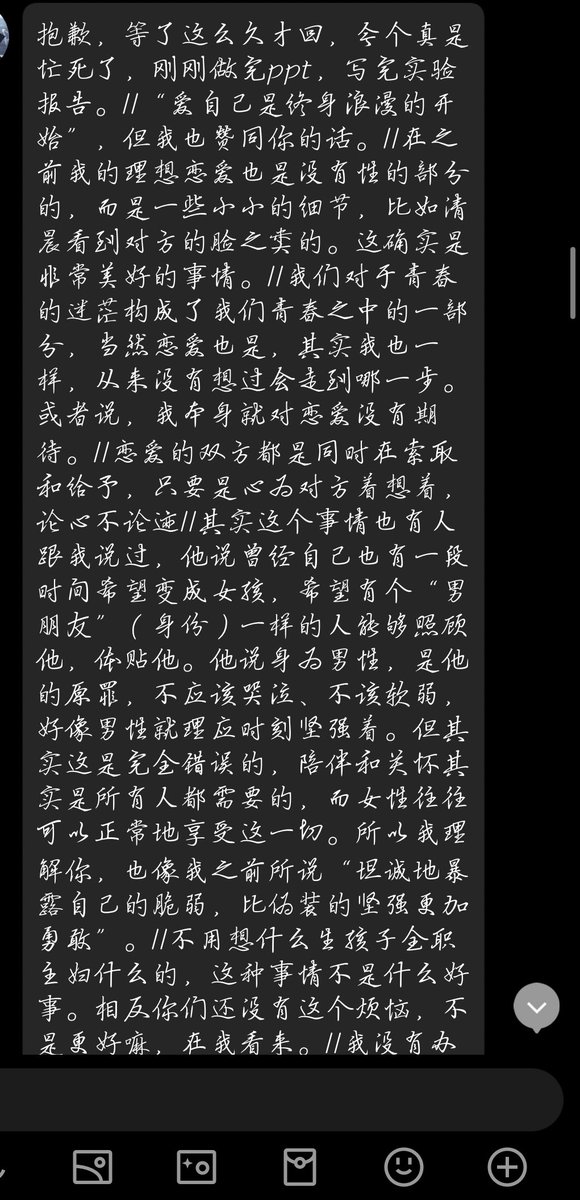 抱歉，等了这么久才回，今个真是
忙死了，刚刚做完ppt，写完实验
报告。//“爱自己是终身浪漫的开
始”，但我也赞同你的话。//在之
前我的理想恋爱也是没有性的部分
的，而是一些小小的细节，比如清
晨看到对方的脸之类的。这确实是
非常美好的事情。//我们对于青春
的迷茫构成了我们青春之中的一部
分，当然恋爱也是，其实我也一
样，从来没有想过会走到哪一步。
或者说，我本身就对恋爱没有期
待。//恋爱的双方都是同时在索取
和给予，只要是心为对方着想着，
论心不论迹//其实这个事情也有人
跟我说过，他说曾经自己也有一段
时间希望变成女孩，希望有个“男
朋友”（身份）一样的人能够照顾
他，体贴他。他说身为男性，是他
的原罪，不应该哭泣、不该软弱，
好像男性就理应时刻坚强着。但其
实这是完全错误的，陪伴和关怀其
实是所有人都需要的，而女性往往
可以正常地享受这一切。所以我理
解你，也像我之前所说“坦诚地暴
露自己的脆弱，比伪装的坚强更加
勇敢”。//不用想什么生孩子全职
主妇什么的，这种事情不是什么好
事。相反你们还没有这个烦恼，不
是更好嘛，在我看来。//我没有办